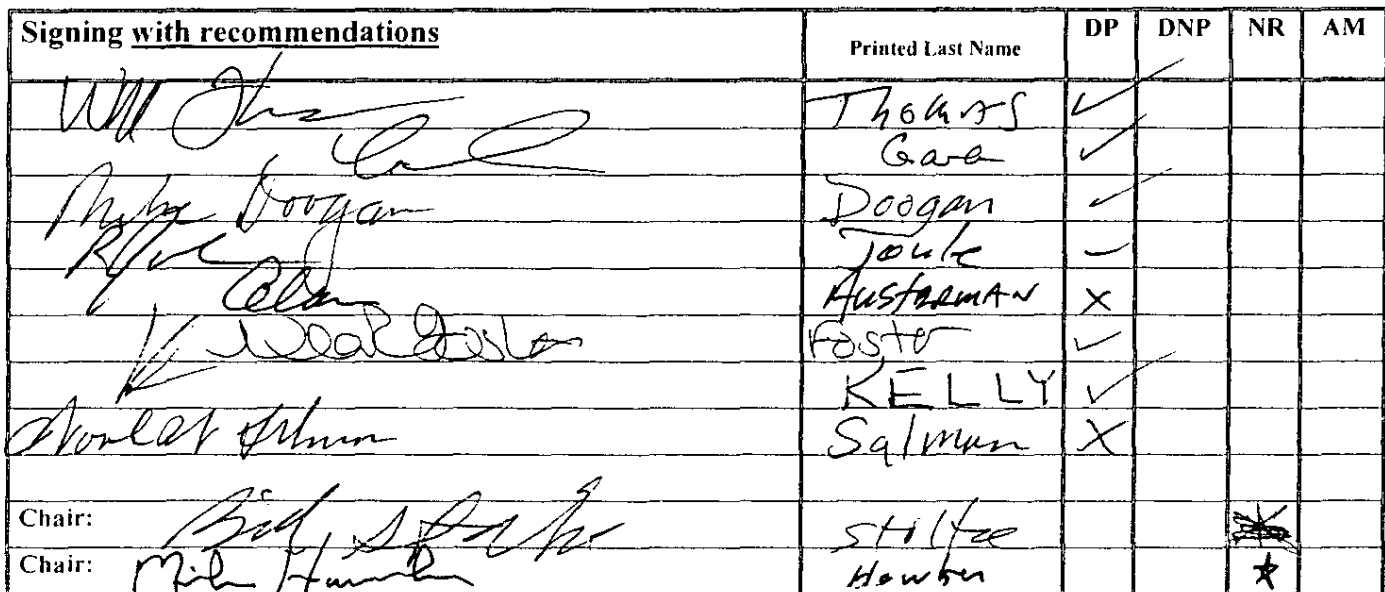 Signing with recommendations Printed Last Name DP DNP NR AM
Thomas ✓
Gara ✓
Mike Doogan Doogan ✓
Joule –
AUSTERMAN X
Neal Foster Foster ✓
KELLY ✓
Woodie Salmon Salmon X
Chair: Bill Stoltze Stoltze
Chair: Mike Hawker Hawker ★